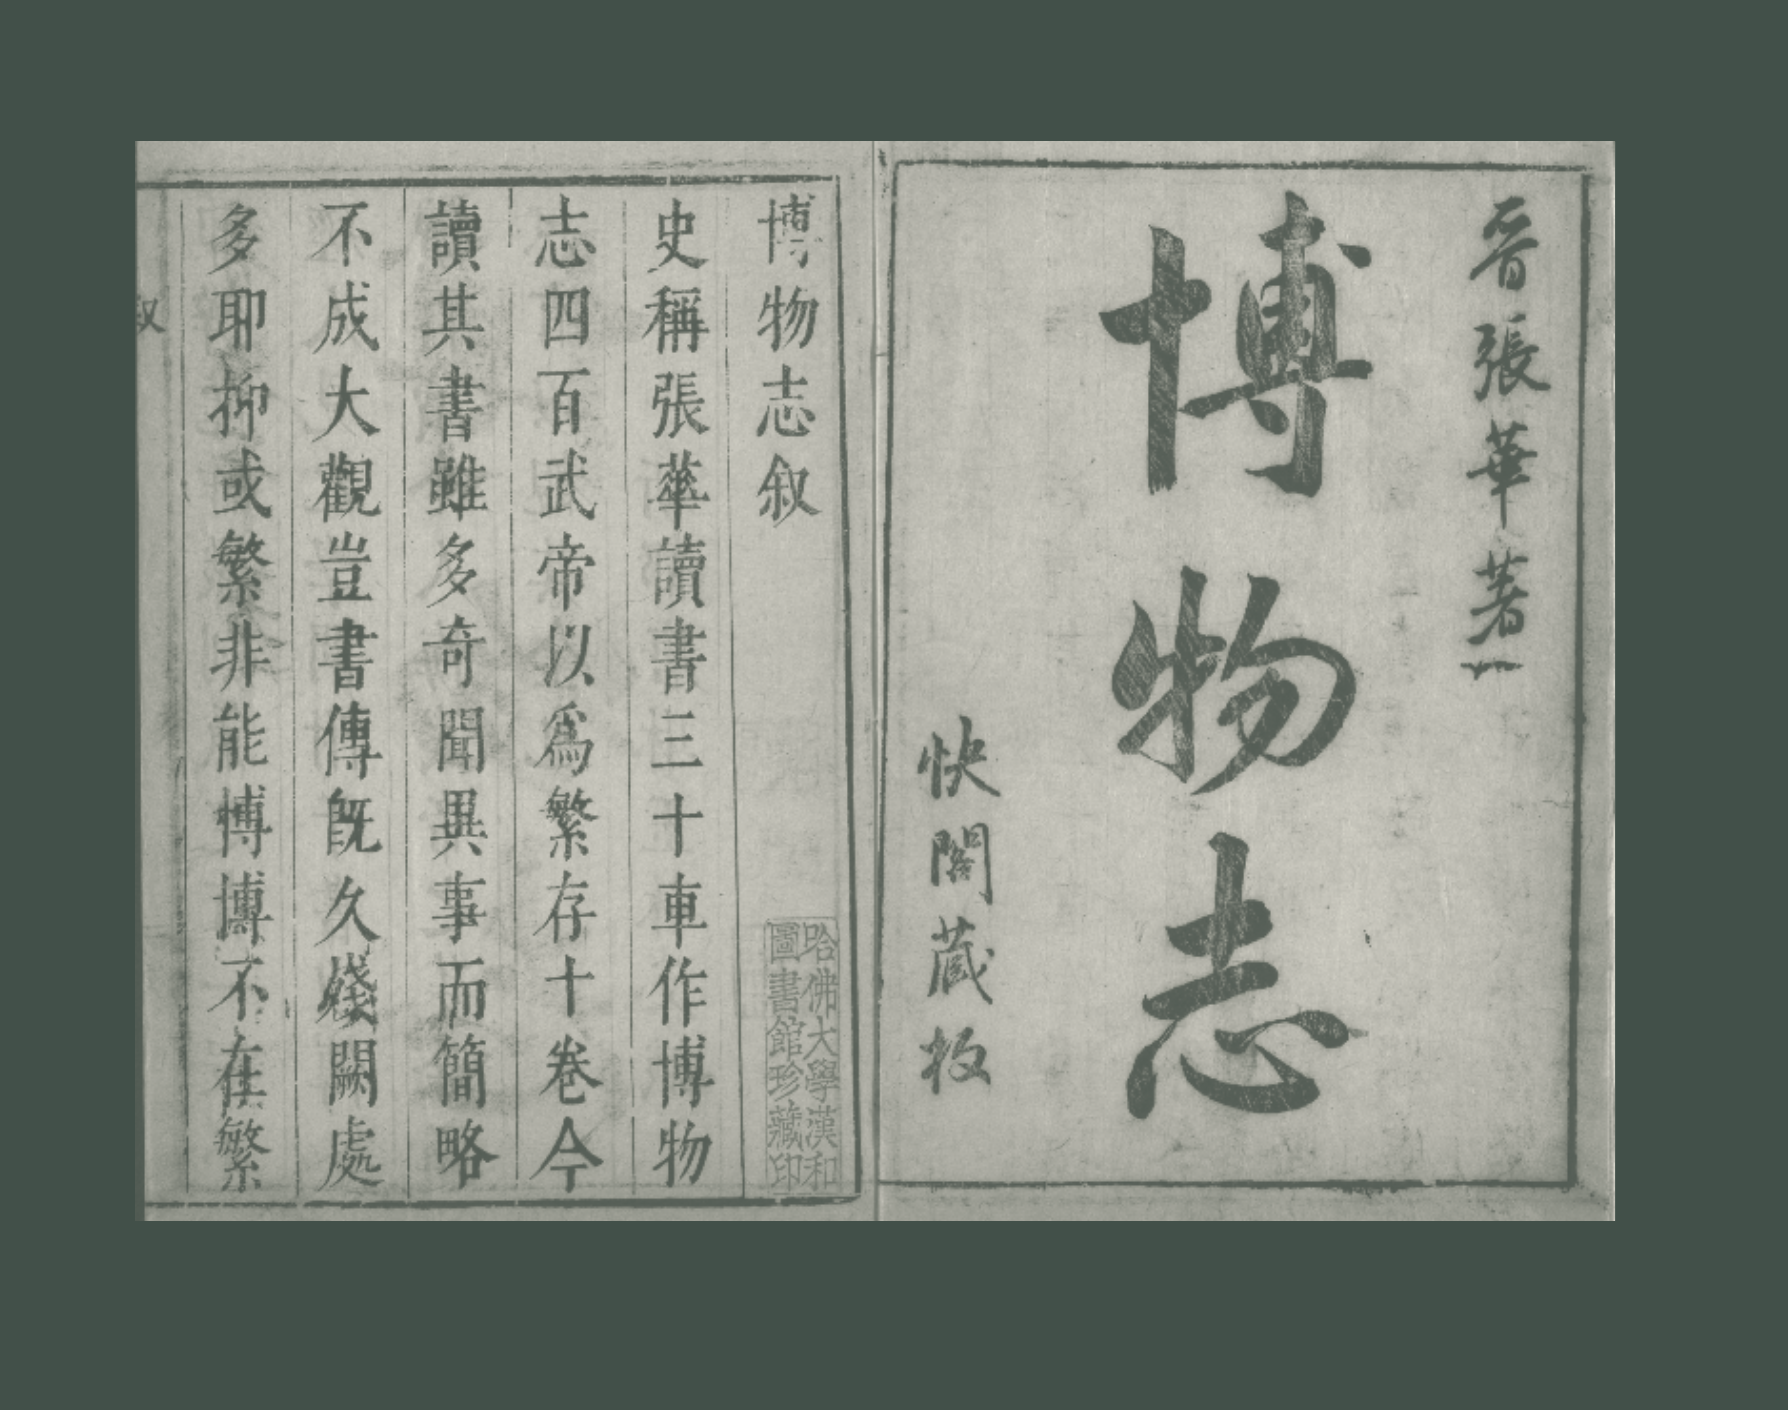 晉張華著
博物志
快閣藏板
博物志叙
史稱張華讀書三十車作博物
志四百武帝以爲繁存十卷今
讀其書雖多奇聞異事而簡略
不成大觀豈書傳旣久殘闕處
多耶抑或繁非能博博不在繁
叙
哈佛大學漢和
圖書館珍藏印